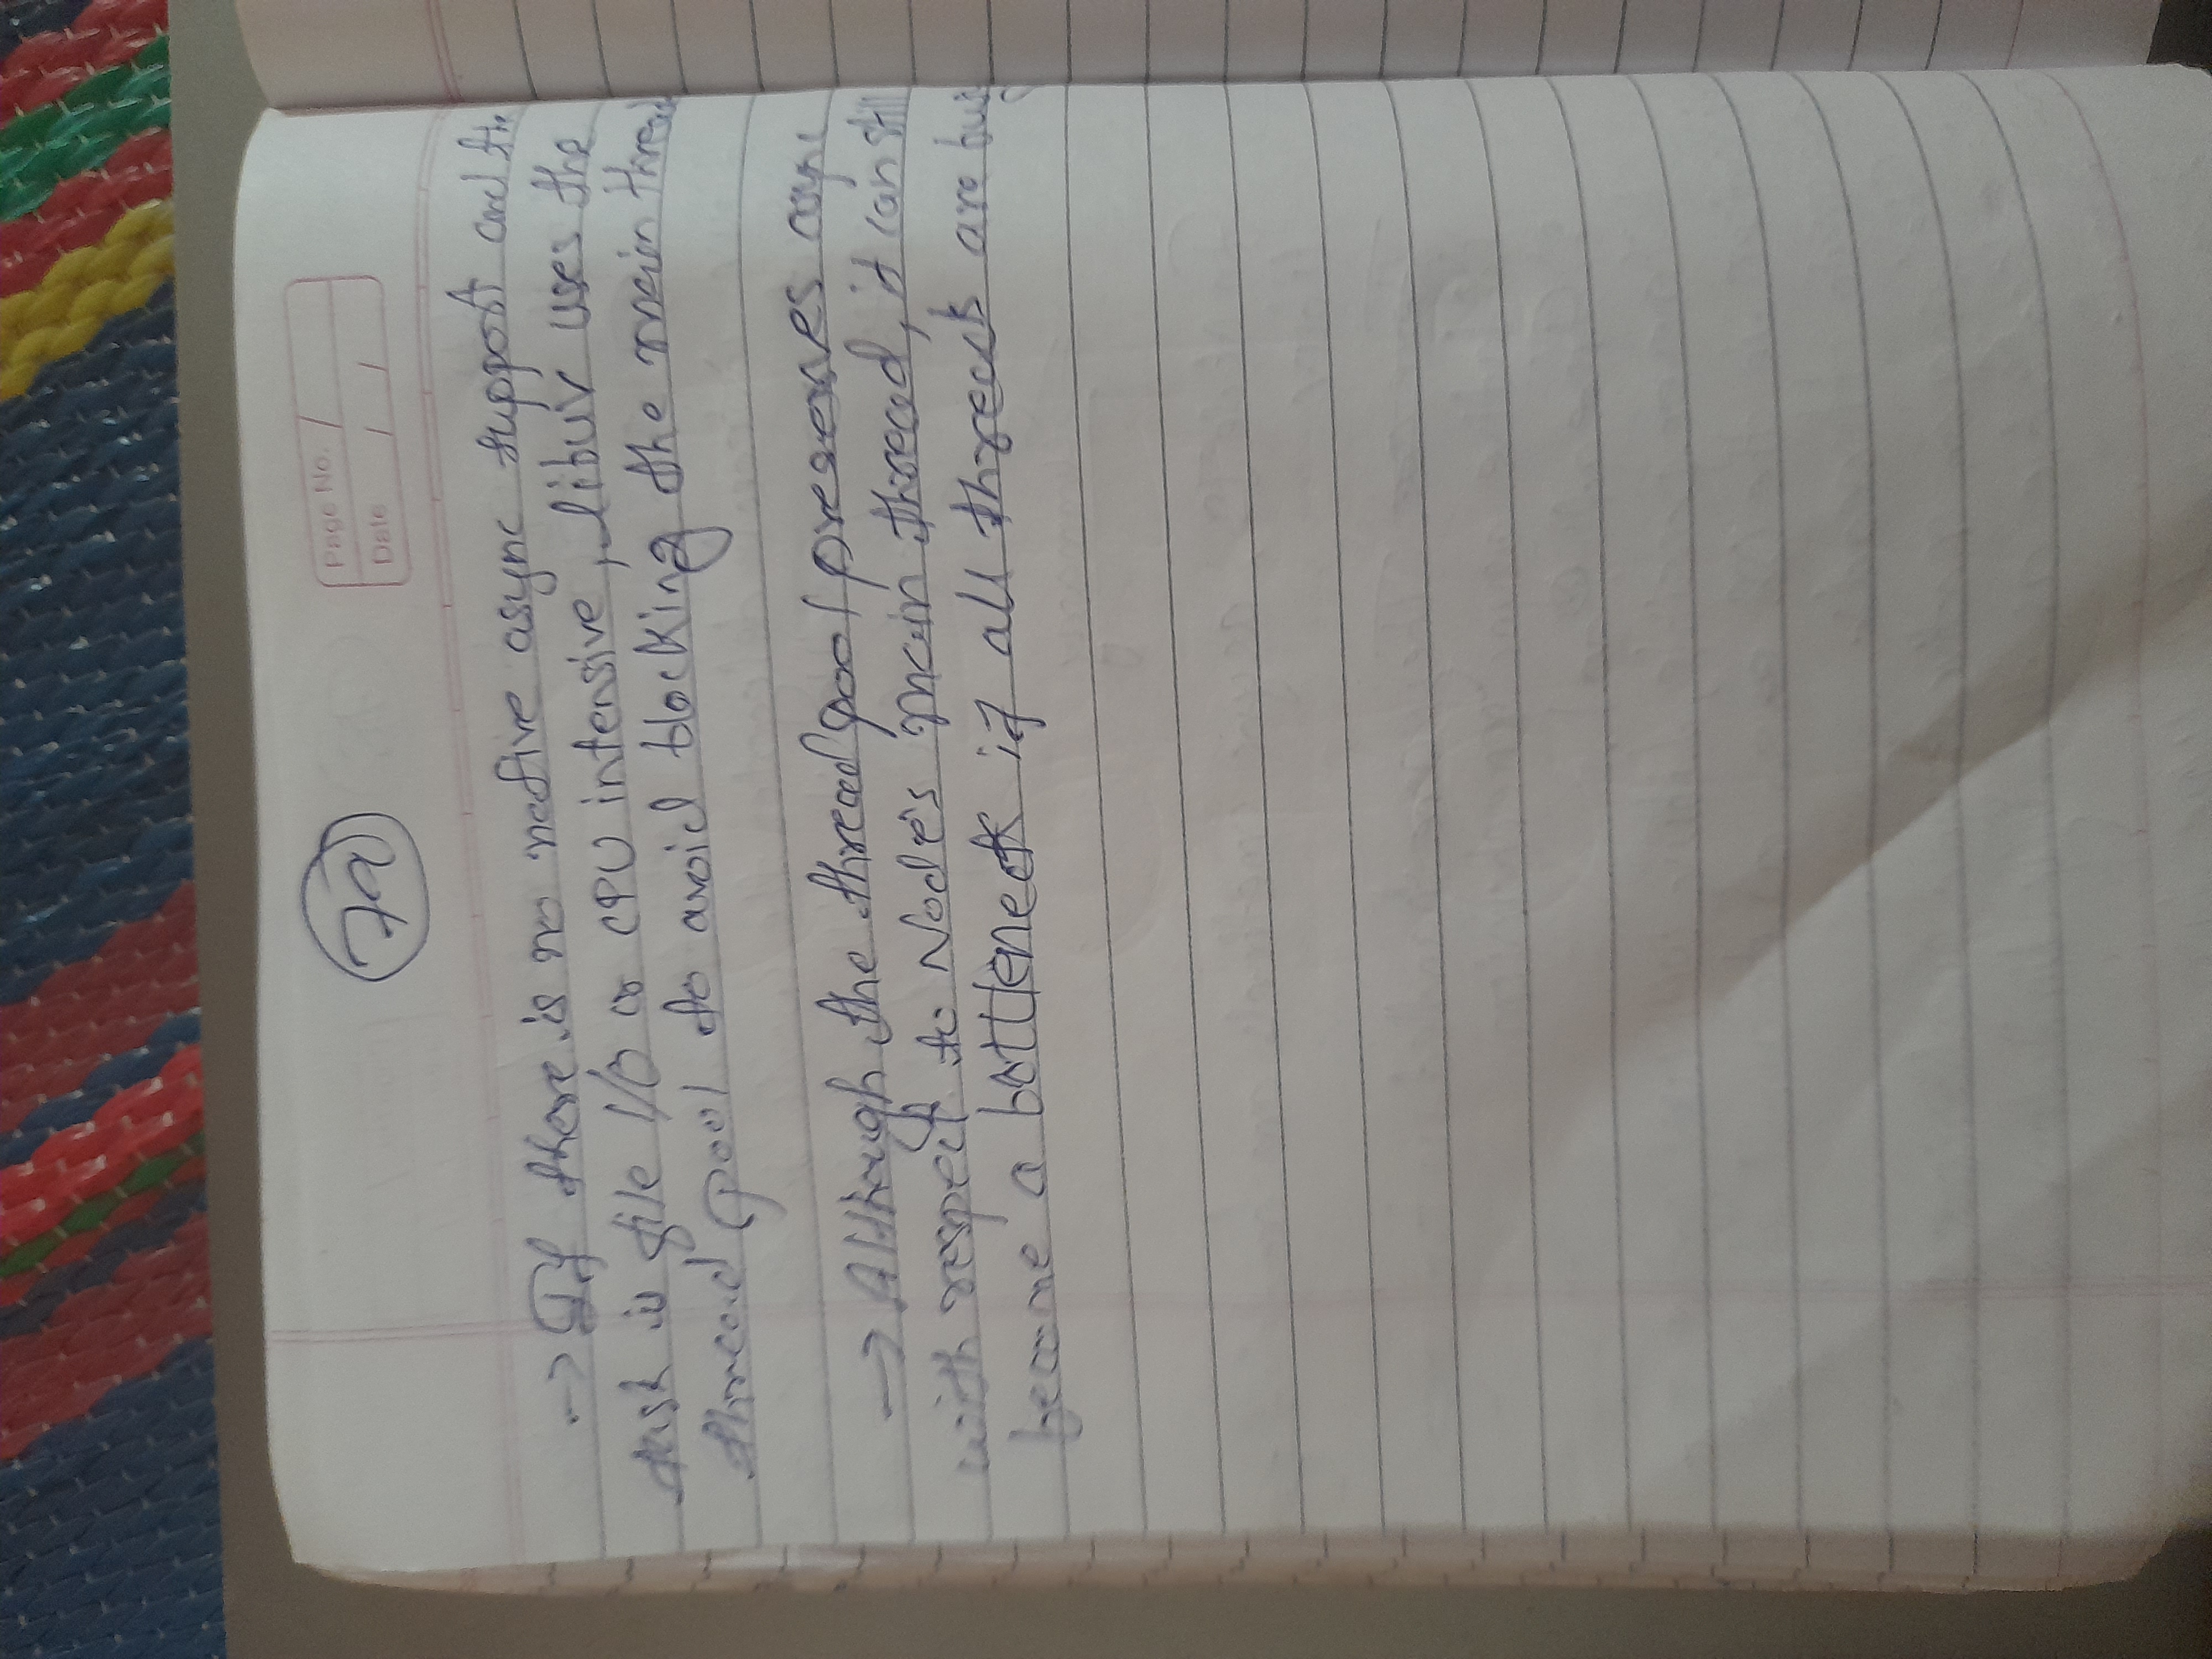 Page No. /
Date / /
→ If there is no native async support and the
task is file I/O or CPU intensive, libuv uses the
thread pool to avoid blocking the main thread
→ Although the thread pool preserves async
with respect to Node's main thread, it can still
become a bottleneck if all threads are busy